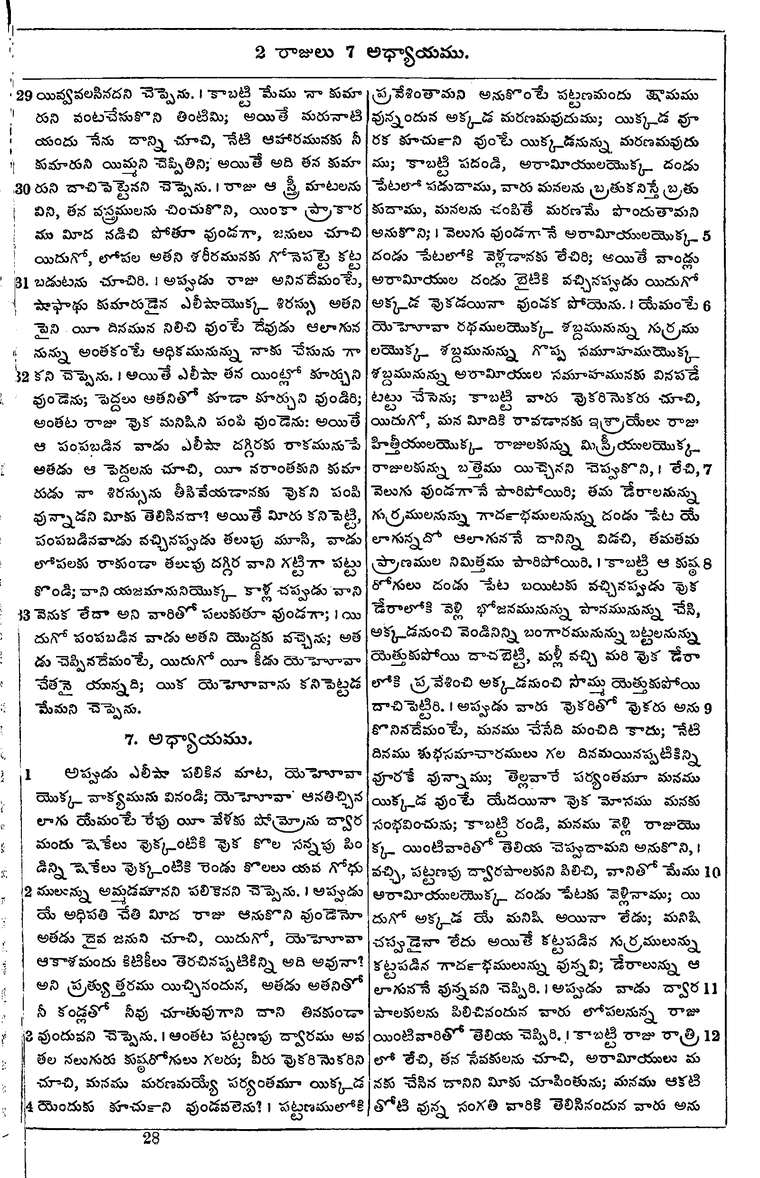 2 రాజులు 7 అధ్యాయము.
29 యివ్వవలసినదని చెప్పెను. । కాబట్టి మేము నా కుమా
రుని వంటచేసుకొని తింటిమి; అయితే మరునాటి
యందు నేను దాన్ని చూచి, నేటి ఆహారమునకు నీ
కుమారుని యిమ్మని చెప్పితిని; అయితే అది తన కుమా
30 రుని దాచిపెట్టెనని చెప్పెను. । రాజు ఆ స్త్రీ మాటలను
విని, తన వస్త్రములను చించుకొని, యింకా ప్రాకార
ము మీద నడిచి పోతూ వుండగా, జనులు చూచి
యిదుగో, లోపల అతని శరీరమునకు గోనెపట్టె కట్ట
31 బడుటను చూచిరి. । అప్పుడు రాజు అనినదేమంటే,
షాఫాథు కుమారుడైన ఎలీషాయొక్క శిరస్సు అతని
పైని యీ దినమున నిలిచి వుంటే దేవుడు ఆలాగున
నున్ను అంతకంటే అధికమునున్ను నాకు చేసును గా
32 కని చెప్పెను. । అయితే ఎలీషా తన యింట్లో కూర్చుని
వుండెను; పెద్దలు అతనితో కూడా కూర్చుని వుండిరి;
అంతట రాజు వొక మనిషిని పంపి వుండెను: అయితే
ఆ పంపబడిన వాడు ఎలీషా దగ్గిరకు రాకమునుపే
అతడు ఆ పెద్దలను చూచి, యీ నరాంతకుని కుమా
రుడు నా శిరస్సును తీసివేయడానకు వొకని పంపి
వున్నాడని మీకు తెలిసినదా? అయితే మీరు కనిపెట్టి,
పంపబడినవాడు వచ్చినప్పుడు తలుపు మూసి, వాడు
లోపలకు రాకుండా తలుపు దగ్గిర వాని గట్టిగా పట్టు
కొండి; వాని యజమానునియొక్క కాళ్ల చప్పుడు వాని
33 వెనుక లేదా అని వారితో పలుకుతూ వుండగా; । యి
దుగో పంపబడిన వాడు అతని యొద్దకు వచ్చెను; అత
డు చెప్పినదేమంటే, యిదుగో యీ కీడు యెహోవా
చేతనై యున్నది; యిక యెహోవాను కనిపెట్టడ
మేమని చెప్పెను.
7. అధ్యాయము.
1 అప్పుడు ఎలీషా పలికిన మాట, యెహోవా
యొక్క వాక్యమును వినండి; యెహోవా ఆనతిచ్చిన
లాగు యేమంటే రేపు యీ వేళకు షోమ్రోను ద్వార
మందు షెకేలు వొక్కంటికి వొక కొల సన్నపు పిం
డిన్ని షెకేలు వొక్కంటికి రెండు కొలలు యవ గోధు
2 ములున్ను అమ్మడమానని పలికెనని చెప్పెను. । అప్పుడు
యే అధిపతి చేతి మీద రాజు ఆనుకొని వుండెనో
అతడు దైవ జనుని చూచి, యిదుగో, యెహోవా
ఆకాశమందు కిటికీలు తెరచినప్పటికిన్ని అది అవునా?
అని ప్రత్యుత్తరము యిచ్చినందున, అతడు అతనితో
నీ కండ్లతో నీవు చూతువుగాని దాని తినకుండా
3 వుందువని చెప్పెను. । అంతట పట్టణపు ద్వారము అవ
తల నలుగురు కుష్ఠరోగులు గలరు; వీరు వొకరినొకరిని
చూచి, మనము మరణమయ్యే పర్యంతమూ యిక్కడ
4 యెందుకు కూచుర్ని వుండవలెను? । పట్టణములోకి
ప్రవేశింతామని అనుకొంటే పట్టణమందు క్షామము
వున్నందున అక్కడ మరణమవుదుము; యిక్కడ వూ
రక కూచుర్ని వుంటే యిక్కడనున్ను మరణమవుదు
ము; కాబట్టి పదండి, అరామీయులయొక్క దండు
పేటలో పడుదాము, వారు మనలను బ్రతుకనిస్తే బ్రతు
కుదాము, మనలను చంపితే మరణమే పొందుతామని
అనుకొని; । వెలుగు వుండగానే అరామీయులయొక్క 5
దండు పేటలోకి వెళ్లడానకు లేచిరి; అయితే వాండ్లు
అరామీయుల దండు బైటికి వచ్చినప్పుడు యిదుగో
అక్కడ వొకడయినా వుండక పోయెను. । యేమంటే 6
యెహోవా రథములయొక్క శబ్దమునున్ను గుర్రము
లయొక్క శబ్దమునున్ను గొప్ప సమూహముయొక్క
శబ్దమునున్ను అరామీయుల సమూహమునకు వినపడే
టట్టు చేసెను; కాబట్టి వారు వొకరినొకరు చూచి,
యిదుగో, మన మీదికి రావడానకు ఇశ్రాయేలు రాజు
హిత్తీయులయొక్క రాజులకున్ను మిస్రీయులయొక్క
రాజులకున్ను బత్తెము యిచ్చెనని చెప్పుకొని, । లేచి, 7
వెలుగు వుండగానే పారిపోయిరి; తమ డేరాలనున్ను
గుర్రములనున్ను గార్దభములనున్ను దండు పేట యే
లాగున్నదో ఆలాగుననే దానిన్ని విడచి, తమతమ
ప్రాణముల నిమిత్తము పారిపోయిరి. । కాబట్టి ఆ కుష్ఠ 8
రోగులు దండు పేట బయిటకు వచ్చినప్పుడు వొక
డేరాలోకి వెళ్లి భోజనమునున్ను పానమునున్ను చేసి,
అక్కడనుంచి వెండినిన్ని బంగారమునున్ను బట్టలనున్ను
యెత్తుకుపోయి దాచబెట్టి, మళ్లీ వచ్చి మరి వొక డేరా
లోకి ప్రవేశించి అక్కడనుంచి సొమ్ము యెత్తుకుపోయి
దాచిపెట్టిరి. । అప్పుడు వారు వొకరితో వొకరు అను 9
కొనినదేమంటే, మనము చేసేది మంచిది కాదు; నేటి
దినము శుభసమాచారములు గల దినమయినప్పటికిన్ని
వూరకే వున్నాము; తెల్లవారే పర్యంతమూ మనము
యిక్కడ వుంటే యేదయినా వొక మోసము మనకు
సంభవించును; కాబట్టి రండి, మనము వెళ్లి రాజుయొ
క్క యింటివారితో తెలియ చెప్పుదామని అనుకొని, ।
వచ్చి, పట్టణపు ద్వారపాలకుని పిలిచి, వానితో మేము 10
అరామీయులయొక్క దండు పేటకు వెళ్లినాము; యి
దుగో అక్కడ యే మనిషి అయినా లేడు; మనిషి
చప్పుడైనా లేదు అయితే కట్టపడిన గుర్రములున్ను
కట్టపడిన గార్దభములున్ను వున్నవి; డేరాలున్ను ఆ
లాగుననే వున్నవని చెప్పిరి. । అప్పుడు వాడు ద్వార 11
పాలకులను పిలిచినందున వారు లోపలనున్న రాజు
యింటివారితో తెలియ చెప్పిరి. । కాబట్టి రాజు రాత్రి 12
లో లేచి, తన సేవకులను చూచి, అరామీయులు మ
నకు చేసిన దానిని మీకు చూపింతును; మనము ఆకటి
తోటి వున్న సంగతి వారికి తెలిసినందున వారు అను
28